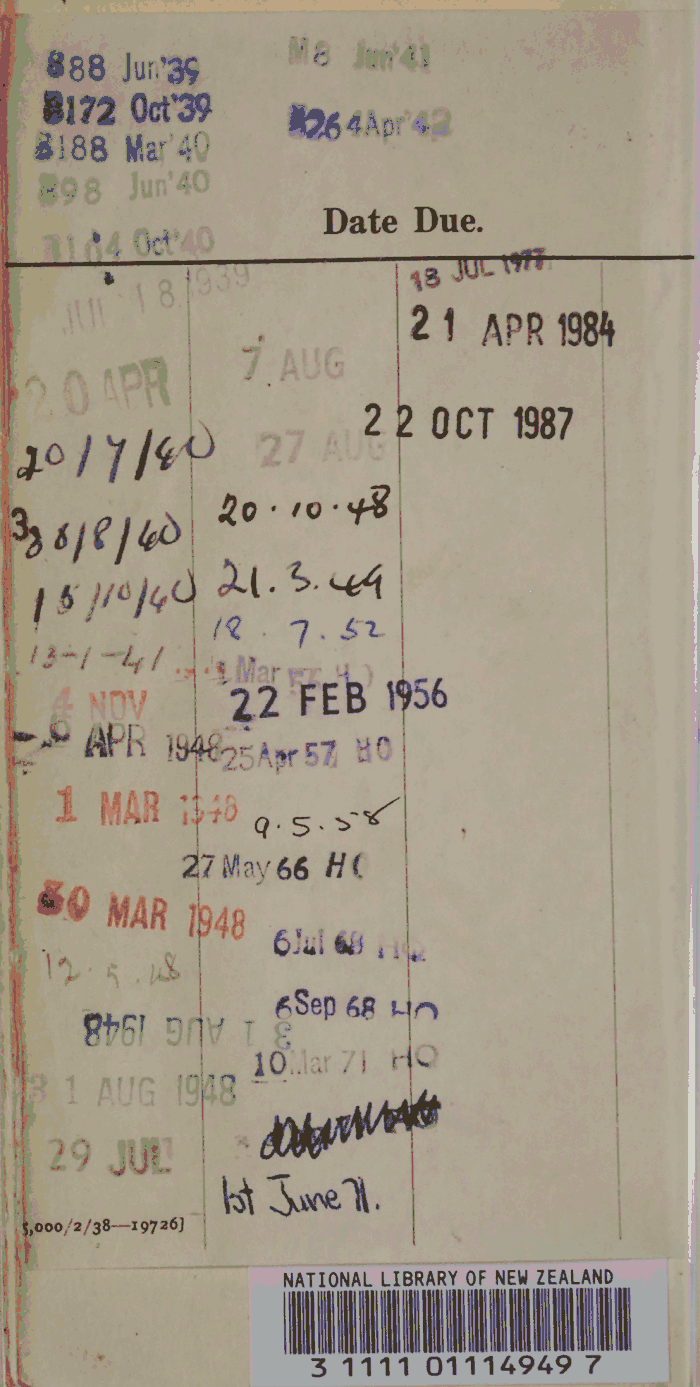 88 Jun'39
M8 Jun'41
B172 Oct'39
264 Apr'42
B188 Mar'40
B98 Jun'40
Oct'40
Date Due.
JUL 18 1939
18 JUL 1977
21 APR 1984
20 APR
7 AUG
22 OCT 1987
20/7/40
27 AUG
20.10.48
/8/40
15/10/40
21.3.49
18.7.52
13-1-41
Mar
4 NOV
22 FEB 1956
APR 1948
25 Apr 57 HO
1 MAR 1948
9.5.58
27 May 66 H
30 MAR 1948
6 Jul 68
12.5.48
6 Sep 68 HO
31 AUG 1948
10 Mar 71 HO
31 AUG 1948
29 JUL
1st June 71.
5,000/2/38—19726]
NATIONAL LIBRARY OF NEW ZEALAND
3 1111 01114949 7